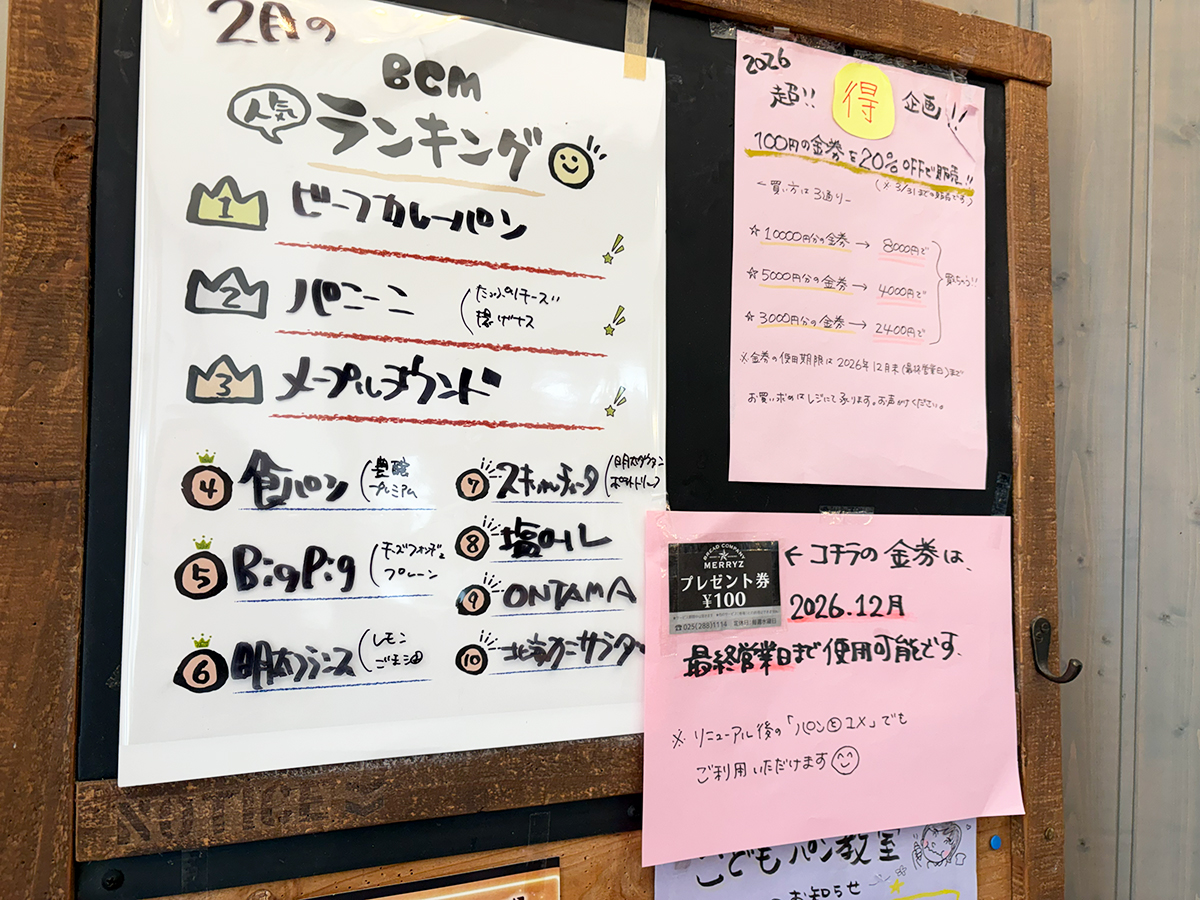 2月の
BCM
人気
ランキング
1 ビーフカレーパン
2 パニーニ
(たっぷりチーズ
揚げナス
3 メープルラウンド
4 食パン
(豊醸
プレミアム
5 BigPig
(チーズフォンデュ
プレーン
6 明太フランス
(レモン
7
(明太グラタン
8 塩ロール
9 ONTAMA
10 北海クニサンタ
2026
超!! 得 企画!!
100円の金券を20%OFFで販売!!
(※3/31までの販売です)
ー買い方は3通りー
☆10000円分の金券→8000円で
☆5000円分の金券→4000円で
☆3000円分の金券→2400円で
買えちゃう!!
※金券の使用期限は2026年12月末(最終営業日)まで
お買い求めはレジにて承ります。お声がけください。
BREAD COMPANY
MERRYZ
プレゼント券
¥100
☎025(288)1114 定休日:毎週水曜日
←コチラの金券は、
2026.12月
最終営業日まで使用可能です。
※リニューアル後の「パンとユメ」でも
ご利用いただけます
NOTICE
こどもパン教室
のお知らせ